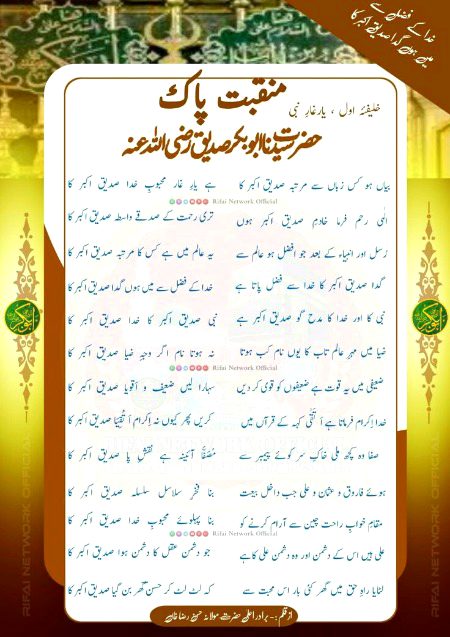 خدا کے فضل سے
میں ہوں گدا صدیق اکبر کا
منقبت پاک
خلیفۂ اول ، یارِ غارِ نبی
حضرت سیدنا ابو بکر صدیق رضی اللہ عنہ
بیاں ہو کس زباں سے مرتبہ صدیق اکبر کا ہے یارِ غار محبوبِ خدا صدیق اکبر کا
Rifai Network Official
الٰہی رحم فرما خادمِ صدیق اکبر ہوں تری رحمت کے صدقے واسطہ صدیق اکبر کا
رسل اور انبیاء کے بعد جو افضل ہو عالم سے یہ عالم میں ہے کس کا مرتبہ صدیق اکبر کا
گدا صدیق اکبر کا خدا سے فضل پاتا ہے خدا کے فضل سے میں ہوں گدا صدیق اکبر کا
نبی کا اور خدا کا مدح گو صدیق اکبر ہے نبی صدیق اکبر کا خدا صدیق اکبر کا
ضیا میں مہر عالم تاب کا یوں نام کب ہوتا نہ ہوتا نام اگر وجہِ ضیا صدیق اکبر کا
Rifai Network Official
ضعیفی میں یہ قوت ہے ضعیفوں کو قوی کر دیں سہارا لیں ضعیف و اقویا صدیق اکبر کا
خدا اِکرام فرماتا ہے اَتْقٰی کہہ کے قرآں میں کریں پھر کیوں نہ اِکرام اَتْقِیَا صدیق اکبر کا
صفا وہ کچھ ملی خاکِ سرِ کوئے پیمبر سے مُصَفّٰا آئینہ ہے نقشِ پا صدیق اکبر کا
ہوئے فاروق و عثمان و علی جب داخلِ بیعت بنا فخرِ سلاسل سلسلہ صدیق اکبر کا
مقامِ خوابِ راحت چین سے آرام کرنے کو بنا پہلوئے محبوبِ خدا صدیق اکبر کا
Rifai Network Official
علی ہیں اس کے دشمن اور وہ دشمن علی کا ہے جو دشمن عقل کا دشمن ہوا صدیق اکبر کا
لٹایا راہِ حق میں گھر کئی بار اس محبت سے کہ لٹ لٹ کر حسنؔ گھر بن گیا صدیق اکبر کا
از قلم :- برادرِ اعلیٰ حضرت مولانا حسن رضا خان
RIFAI NETWORK OFFICIAL
RIFAI NETWORK OFFICIAL